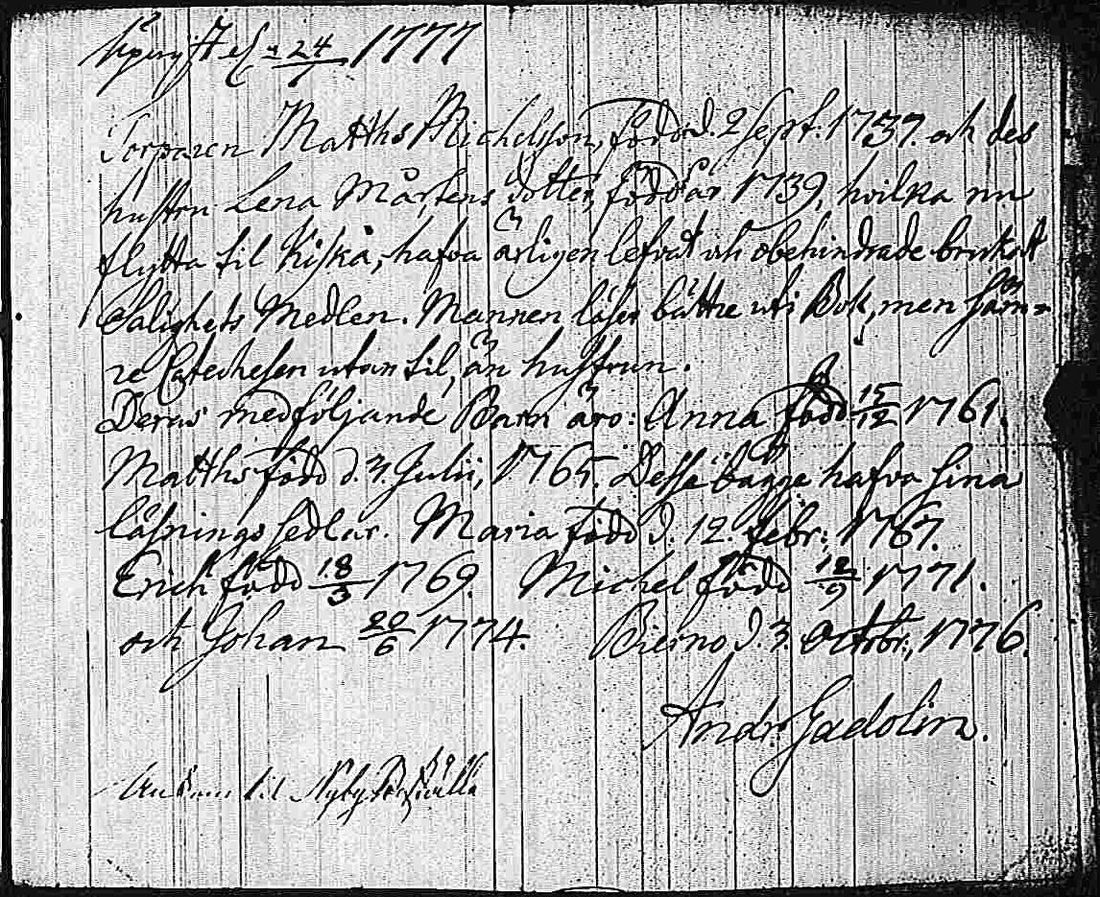 24/7 1777
Torparen Matths Michelsson, född d. 2 Sept. 1737. och des
hustru Lena Mårtens dotter, född år 1739, hvilka nu
flytta til Kiskå, hafva ärligen lefvat och obehindrade brukat
Salighets Medlen. Mannen läser bättre uti Bok, men säm-
re Catechesen utan til, än hustrun.
Deras medföljande Barn äro: Anna född 15/12 1761.
Matths född d. 3. Julii, 1765. Desse bägge hafva sina
läsnings sedlar. Maria född d. 12. febr:, 1767.
Erich född 18/3 1769. Michel född 12/9 1771.
och Johan 20/6 1774. Bierno d. 3. Octobr:, 1776.
Andr. Gadolin.
til Nyby